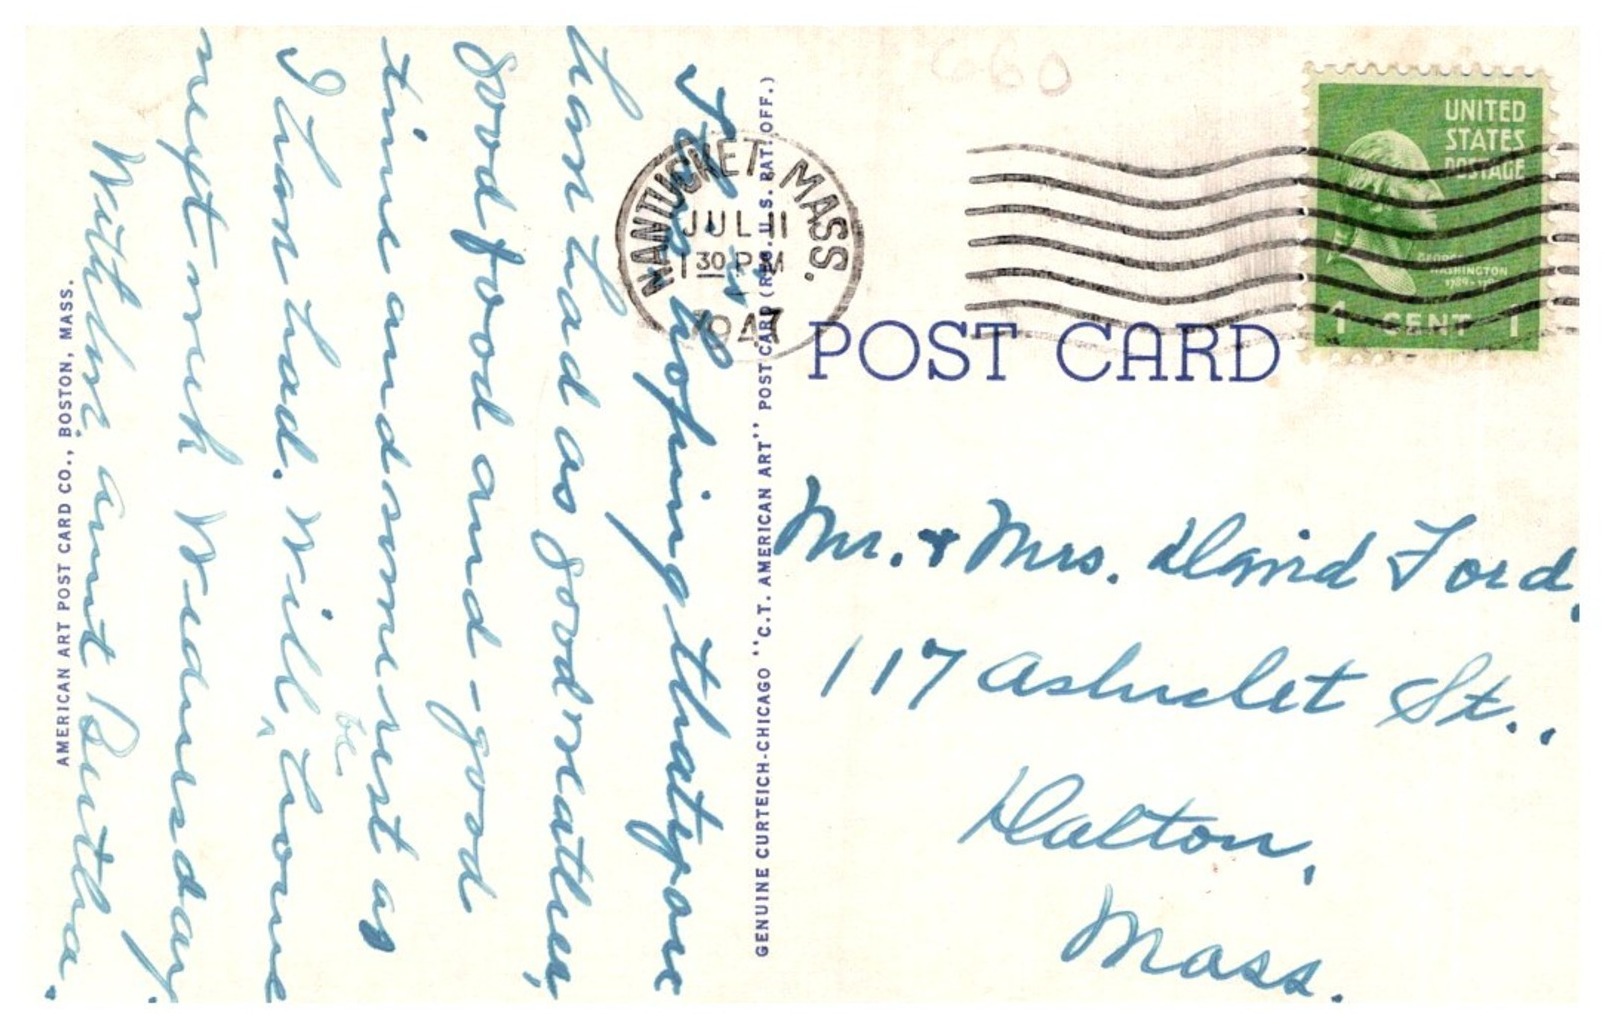 660
NANTUCKET MASS.
JUL 11
1 30 PM
1947
UNITED
STATES
POSTAGE
GEORGE
WASHINGTON
1 CENT 1
POST CARD
Mr. & Mrs. David Ford,
117 Ashuelet St.,
Dalton,
Mass.
GENUINE CURTEICH-CHICAGO "C.T. AMERICAN ART" POST CARD (REG. U.S. PAT. OFF.)
hoping that you
have had as good weather,
good food and - good
time and some rest as
I have had. Will be home
next week Wednesday.
With love, aunt Bertha.
AMERICAN ART POST CARD CO., BOSTON, MASS.